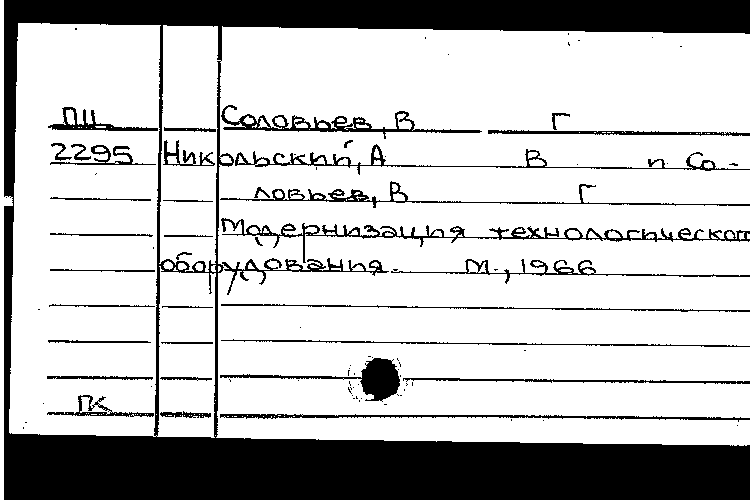 ПЦ Соловьев, В Г
2295 Никольский, А В и Со-
ловьев, В Г
Модернизация технологического
оборудования. М., 1966
ПК